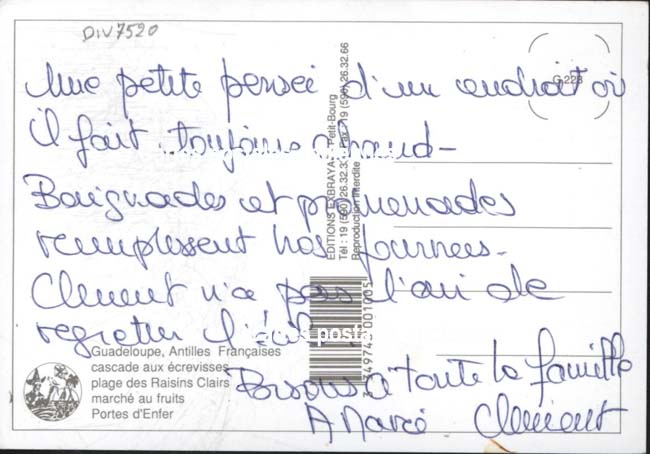 DIV7520
G 223
Une petite pensée d'un endroit où
il fait toujours chaud -
Baignades et promenades
remplissent nos journées -
Clément n'a pas l'air de
regretter l'école
Bisous à toute la famille
Clément
EDITIONS EXBRAYAT - Petit-Bourg
Tél : 19 (590) 26.32.33 Fax : 19 (590) 26.32.66
Reproduction interdite
Guadeloupe, Antilles Françaises
cascade aux écrevisses
plage des Raisins Clairs
marché au fruits
Portes d'Enfer